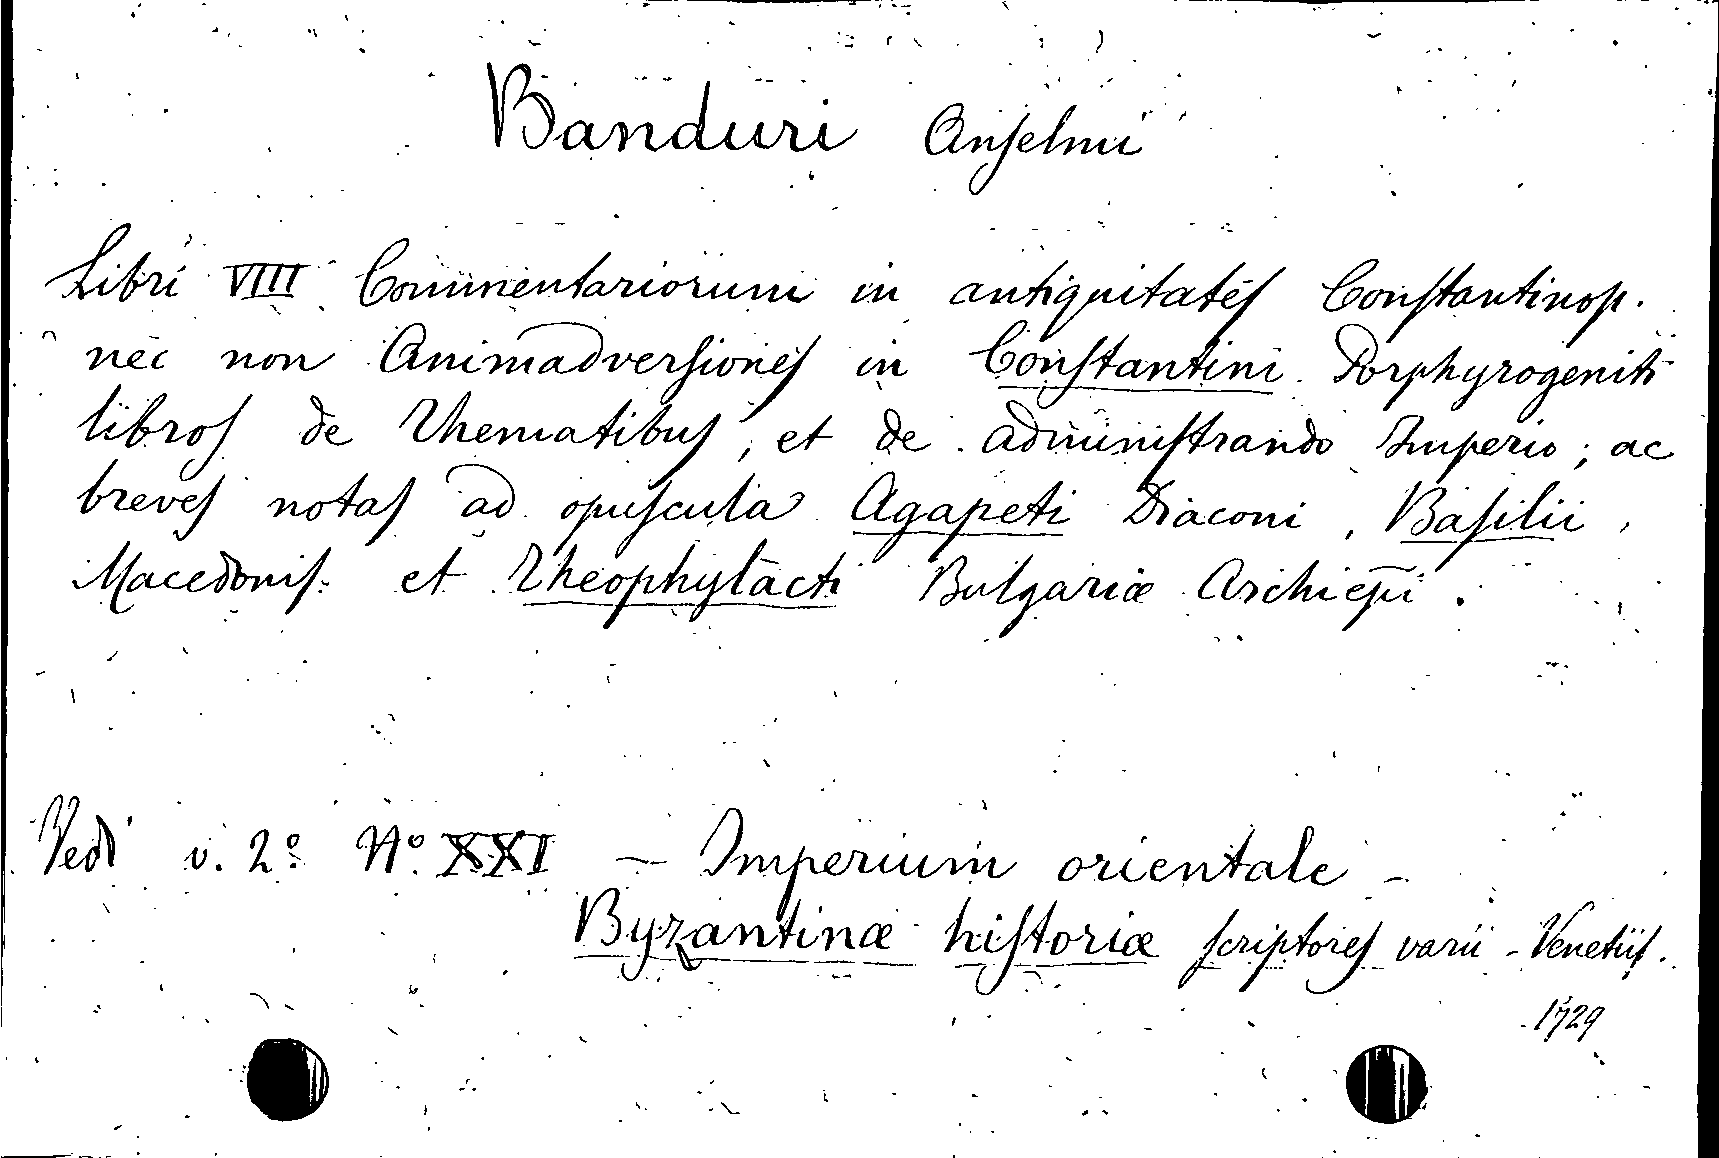 Banduri Anselmi
Libri VIIII Commentariorum in antiquitates Constantinop.
nec non Animadversiones in Constantini Porphyrogeniti
libros de Thematibus, et de administrando Imperio; ac
breves notas ad opuscula Agapeti Diaconi, Basilii,
Macedonis. et Theophylacti Bulgariæ Archiepi.
Vedi v. 2º Nº XXI — Imperium orientale -
Byzantinæ historiæ scriptores varii - Venetiis.
1729